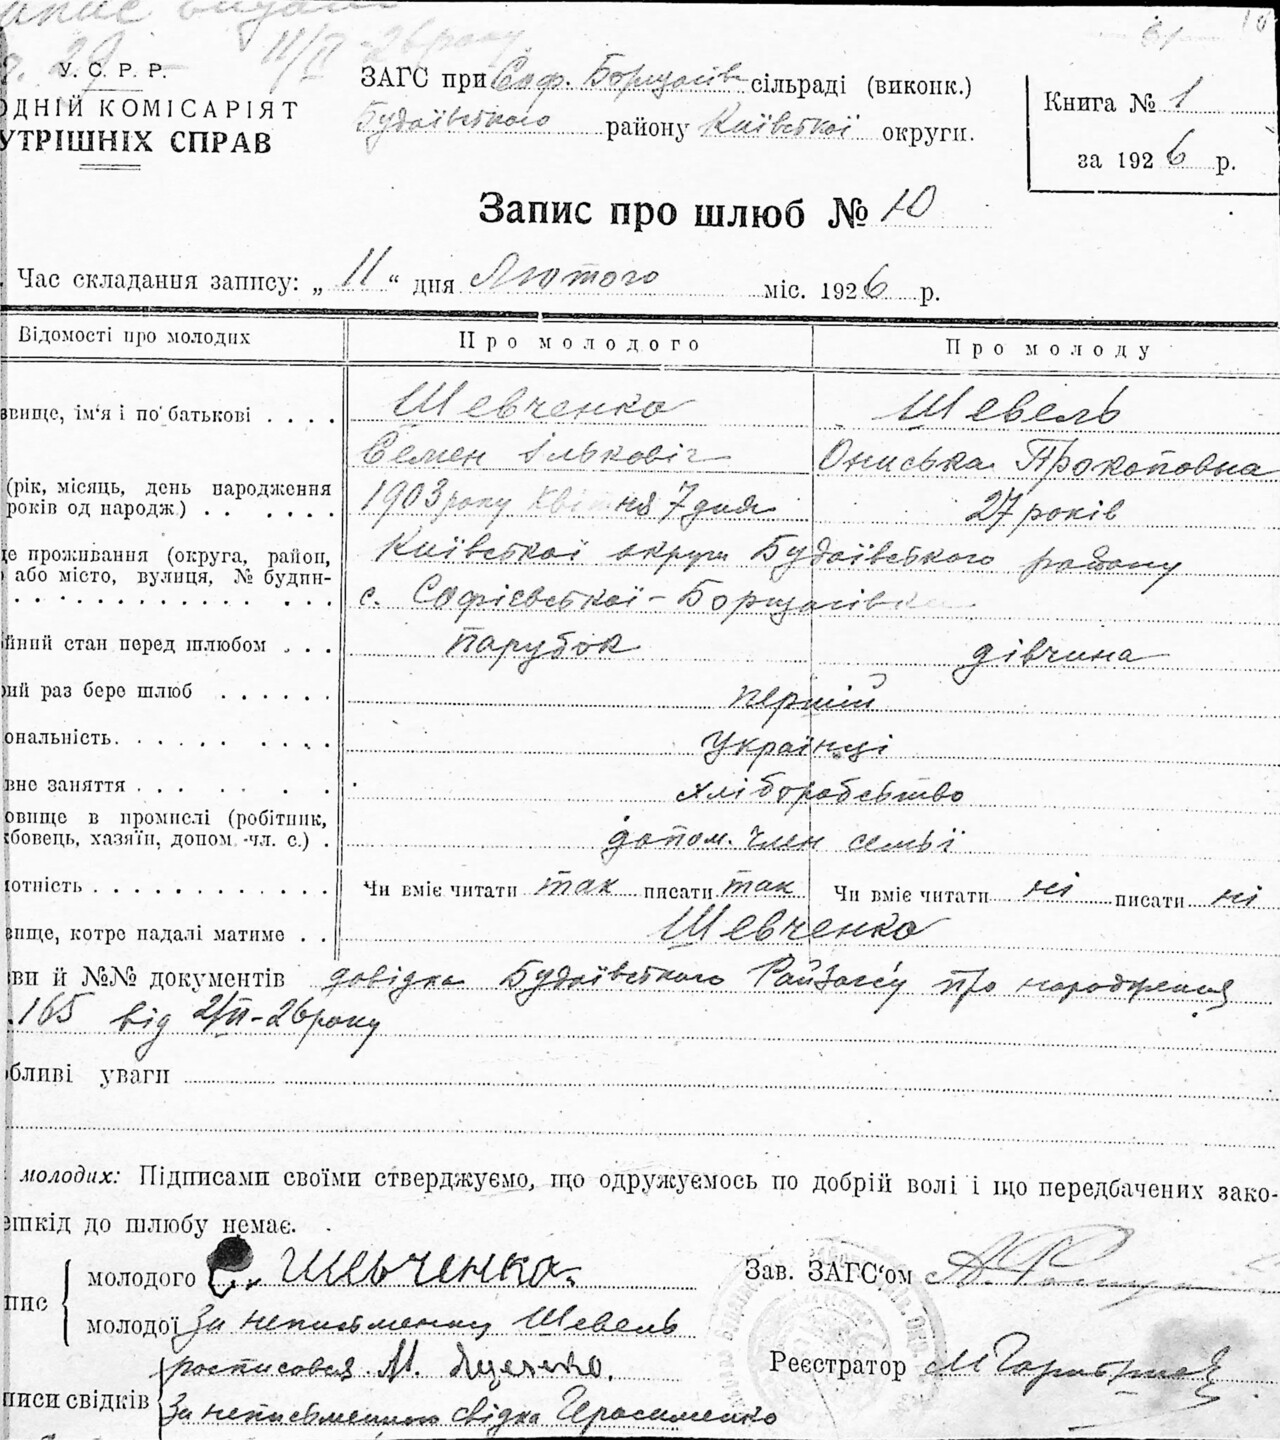 запис видано
29 11/II-26 року
У. С. Р. Р.
ОДНІЙ КОМІСАРІЯТ
УТРІШНІХ СПРАВ
ЗАГС при Соф. Борщагів сільраді (виконк.)
Будаївського району Київської округи.
Книга № 1
за 1926 р.
Запис про шлюб № 10
Час складання запису: „11“ дня Лютого міс. 1926 р.
Відомості про молодих
Про молодого
Про молоду
звище, ім'я і по батькові . . . .
Шевченко
Шевель
Семен Ільковіч
Ониська Прокоповна
(рік, місяць, день народження
років од народж.) . . . . . .
1903 року Квітня 7 дня
27 років
це проживання (округа, район,
або місто, вулиця, № будин-
Київської округи Будаївського району
с. Софієвської-Борщагівка
йний стан перед шлюбом . . .
парубок
дівчина
рий раз бере шлюб . . . . . .
першій
ональність. . . . . . . . . .
Українці
вне заняття . . . . . . .
хліборобство
овище в промислі (робітник,
жбовець, хазяїн, допом.-чл. с.) .
допом. член семьї
отність . . . . . . . . . . . . .
Чи вміє читати так писати так
Чи вміє читати ні писати ні
вище, котре надалі матиме . .
Шевченко
ви й №№ документів довідка Будаївського РайЗагсу про народження
165 від 2/II-26 року
обливі уваги
молодих: Підписами своїми стверджуємо, що одружуємось по добрій волі і що передбачених зако-
ешкід до шлюбу немає.
пис
молодого С. Шевченко.
молодої За неписьменну Шевель
росписовся М.
писи свідків
За неписьменного свідка Герасименко
Зав. ЗАГС'ом
Реєстратор